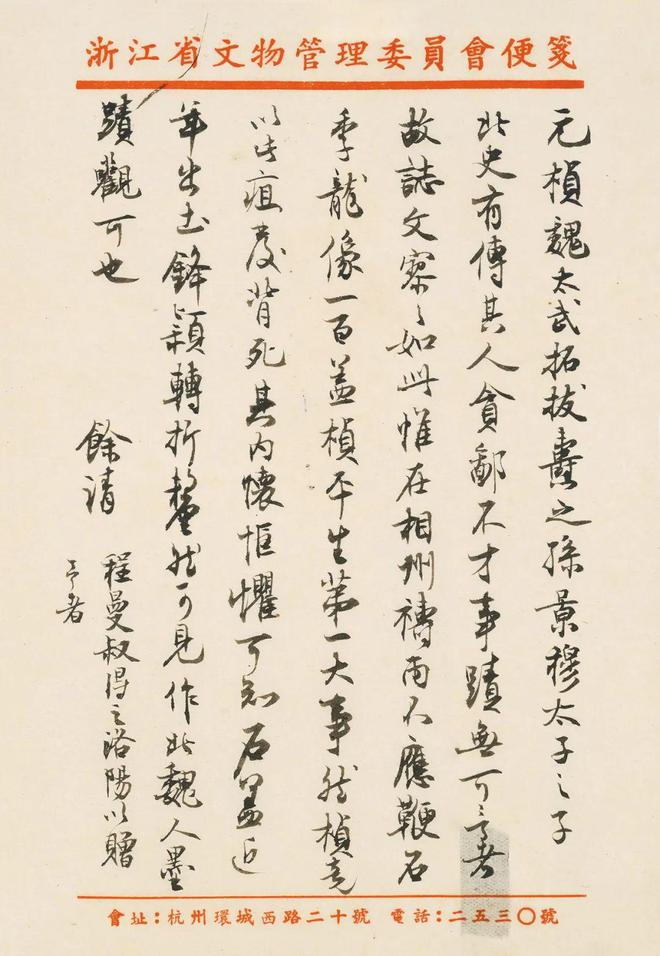 浙江省文物管理委員會便箋
元楨魏太武拓拔燾之孫景穆太子之子
北史有傳其人貪鄙不才事蹟無可言者
故誌文寥々如此惟在相州禱雨不應鞭石
季龍像一百蓋楨平生第一大事然楨竟
以此疽發背死其内懷恇懼可知石蓋近
年出土鋒穎轉折鏨然可見作北魏人墨
蹟觀可也
餘清
程曼叔得之洛陽以贈
予者
會址：杭州環城西路二十號　電話：二五三〇號